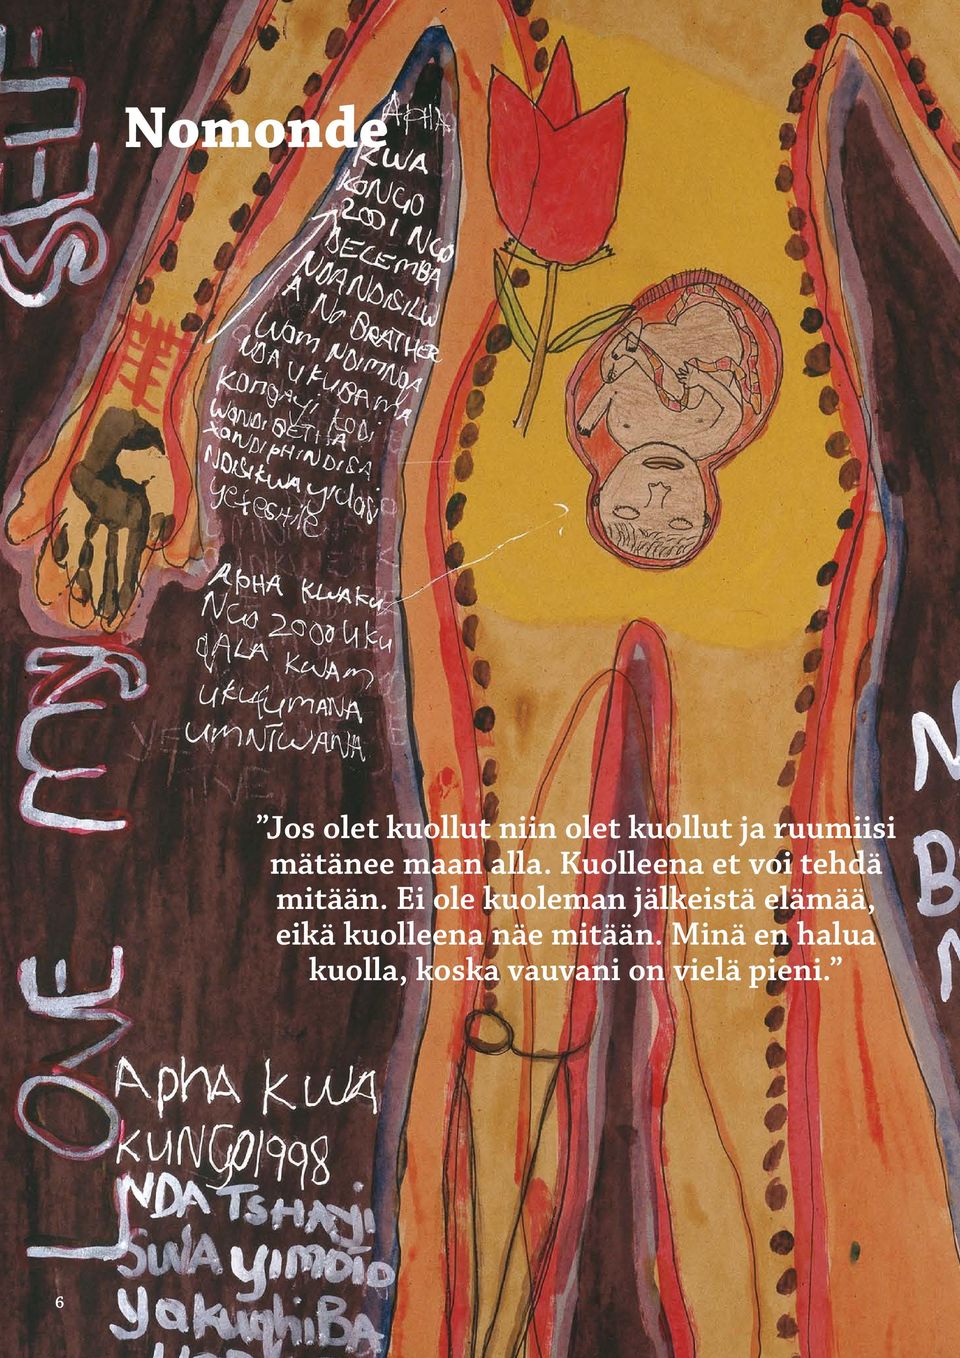 Nomonde
APHA
KWA
KONGO
2001 NGO
DECEMBA
NDANDISILW
A NO BRATHER
WAM NDIMNDA
NDA UKUBAMA
KONGAYI KODI
WANDIBETHA
XANDIPHINDISA
NDISIKWA
APHA KWAKU
NGO 2000 UKU
QALA KWAM
UKUQUMANA
UMNTWANA
”Jos olet kuollut niin olet kuollut ja ruumiisi
mätänee maan alla. Kuolleena et voi tehdä
mitään. Ei ole kuoleman jälkeistä elämää,
eikä kuolleena näe mitään. Minä en halua
kuolla, koska vauvani on vielä pieni.”
LOVE MY SELF
APhA KWA
KUNGO1998
NDATSHAYI
SWA YIMOTO
YakuqhiBA
N
B
6